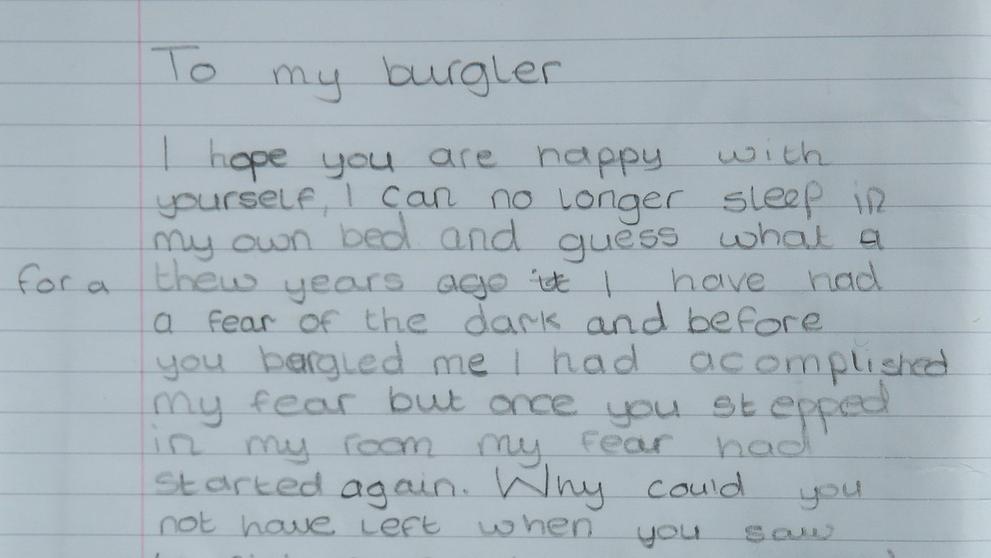 To my burgler
I hope you are happy with
yourself, I can no longer sleep in
my own bed and guess what a
for a thew years ago it I have had
a fear of the dark and before
you bargled me I had acomplished
my fear but once you stepped
in my room my fear had
started again. Why could you
not have left when you saw